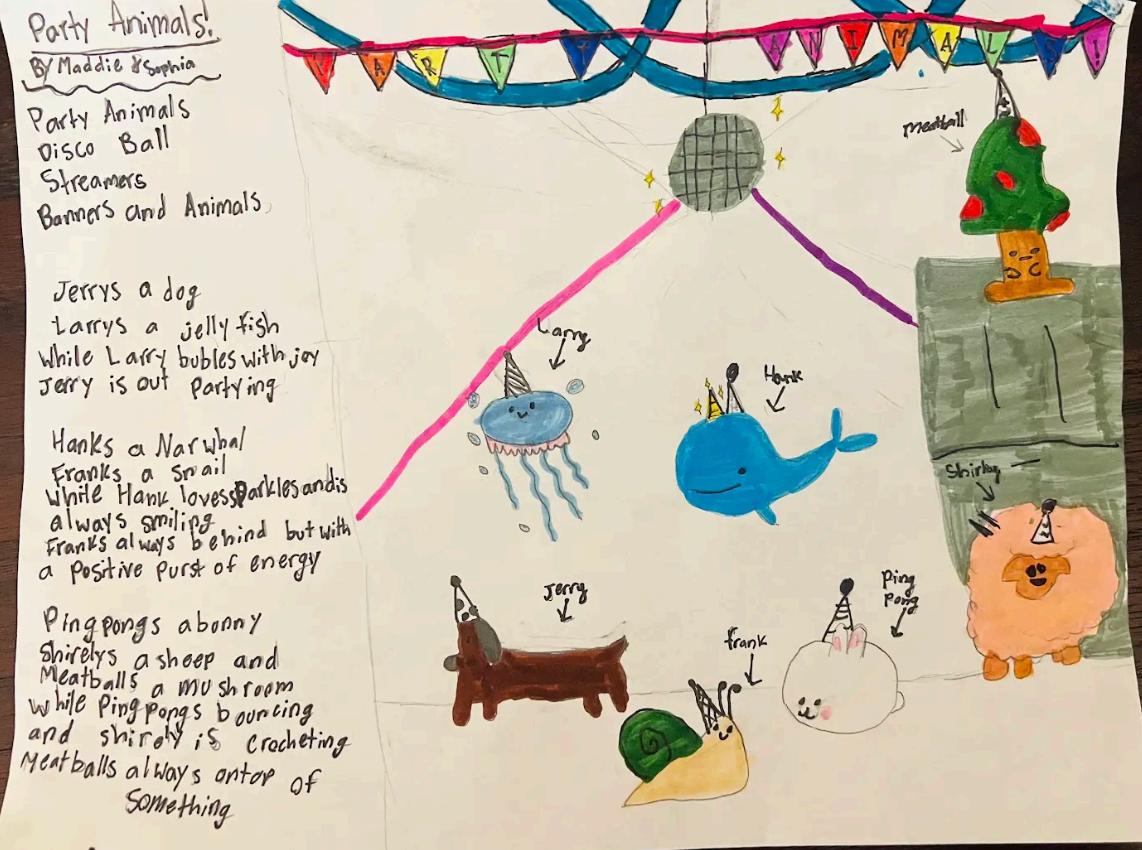 Party Animals!
By Maddie & Sophia
Party Animals
Disco Ball
Streamers
Banners and Animals
Jerrys a dog
Larrys a jelly fish
While Larry bubles with joy
Jerry is out partying
Hanks a Narwhal
Franks a snail
While Hank loves sparkles and is
always smiling
Franks always behind but with
a positive purst of energy
Pingpongs a bonny
Shirelys a sheep and
Meatballs a mushroom
While Ping Pongs bouncing
and shirely is crocheting
Meatballs always ontop of
Something
PARTY ANIMALS!
Meatball
Larry
Hank
Shirley
Jerry
Ping
Pong
frank